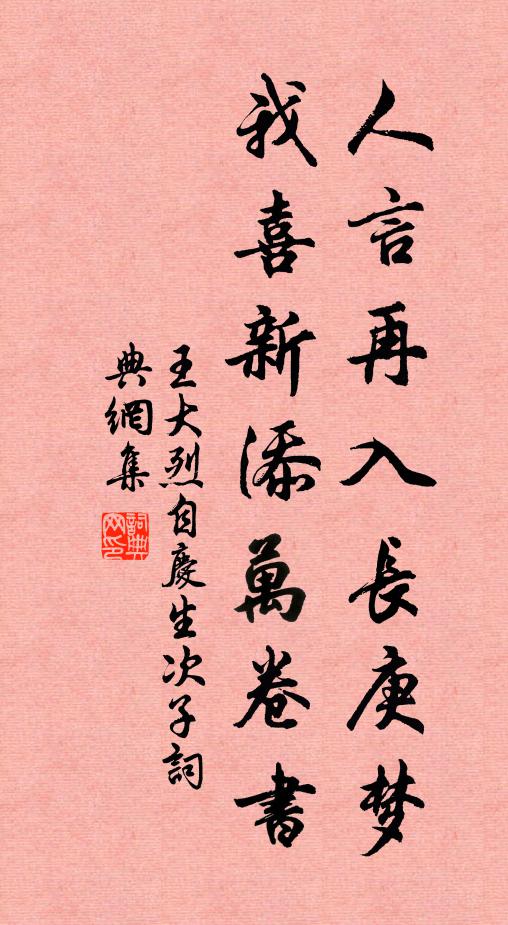 人言再入長庚梦
我喜新添萬卷書
王大烈自慶生次子詞
典網集
詞典
网印